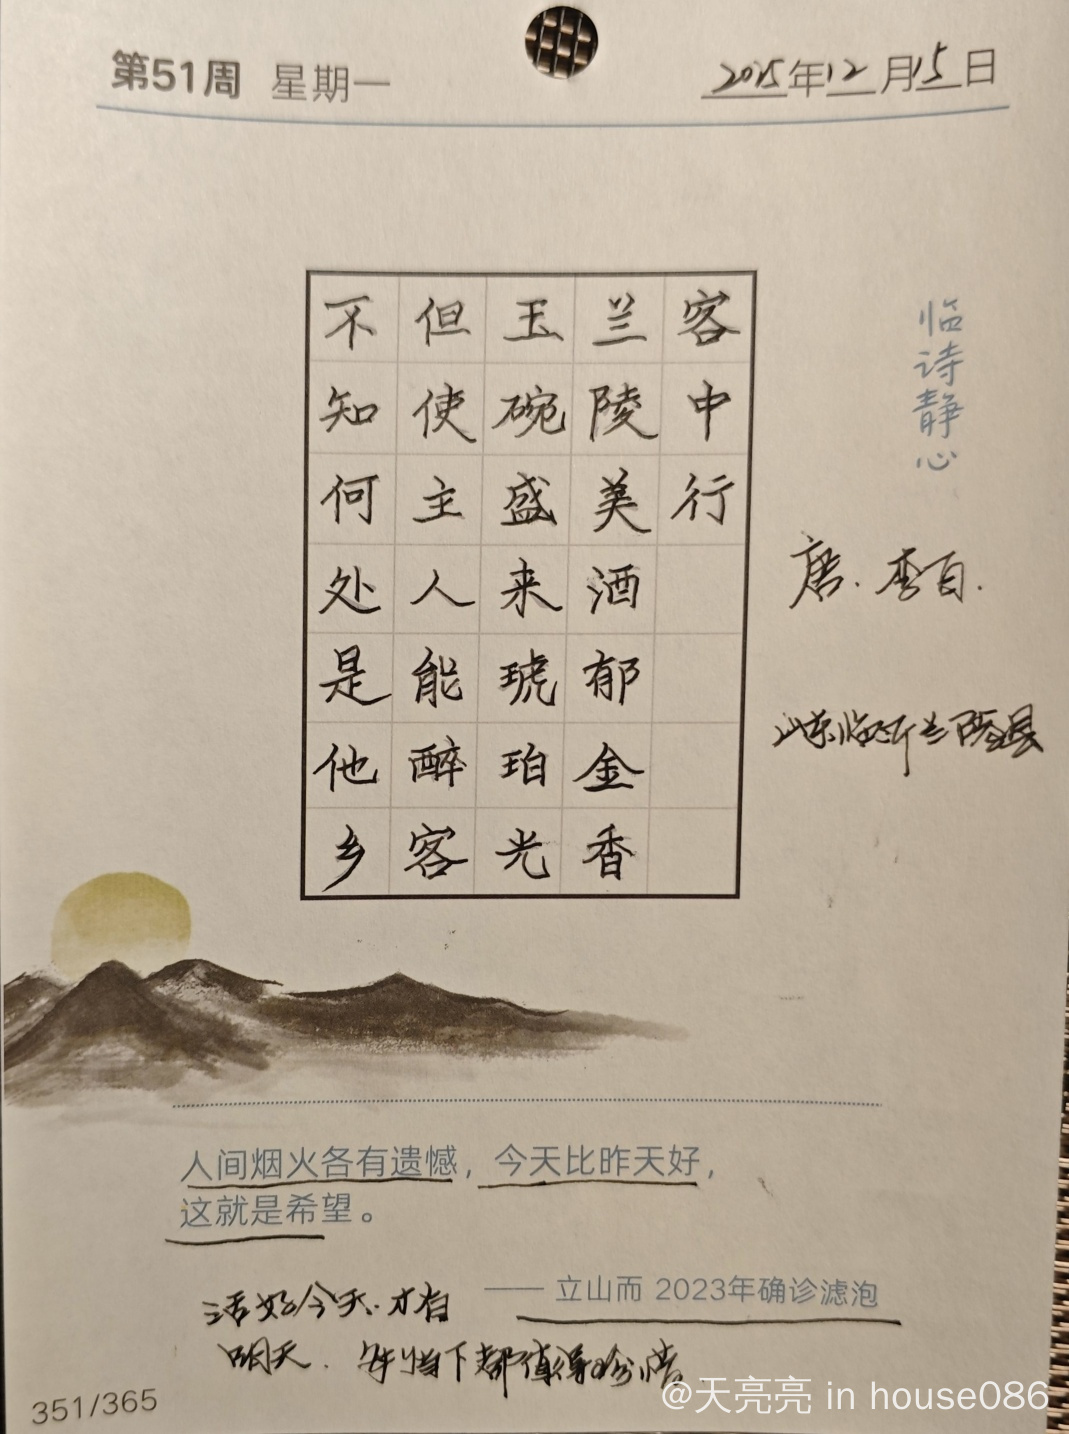 第51周 星期一
2025年12月15日
客中行
兰陵美酒郁金香
玉碗盛来琥珀光
但使主人能醉客
不知何处是他乡
临诗静心
唐.李白.
山东临沂兰陵县
人间烟火各有遗憾，今天比昨天好，
这就是希望。
—— 立山而 2023年确诊滤泡
活好今天.才有
明天.每当下都值得珍惜.
351/365
@天亮亮 in house086